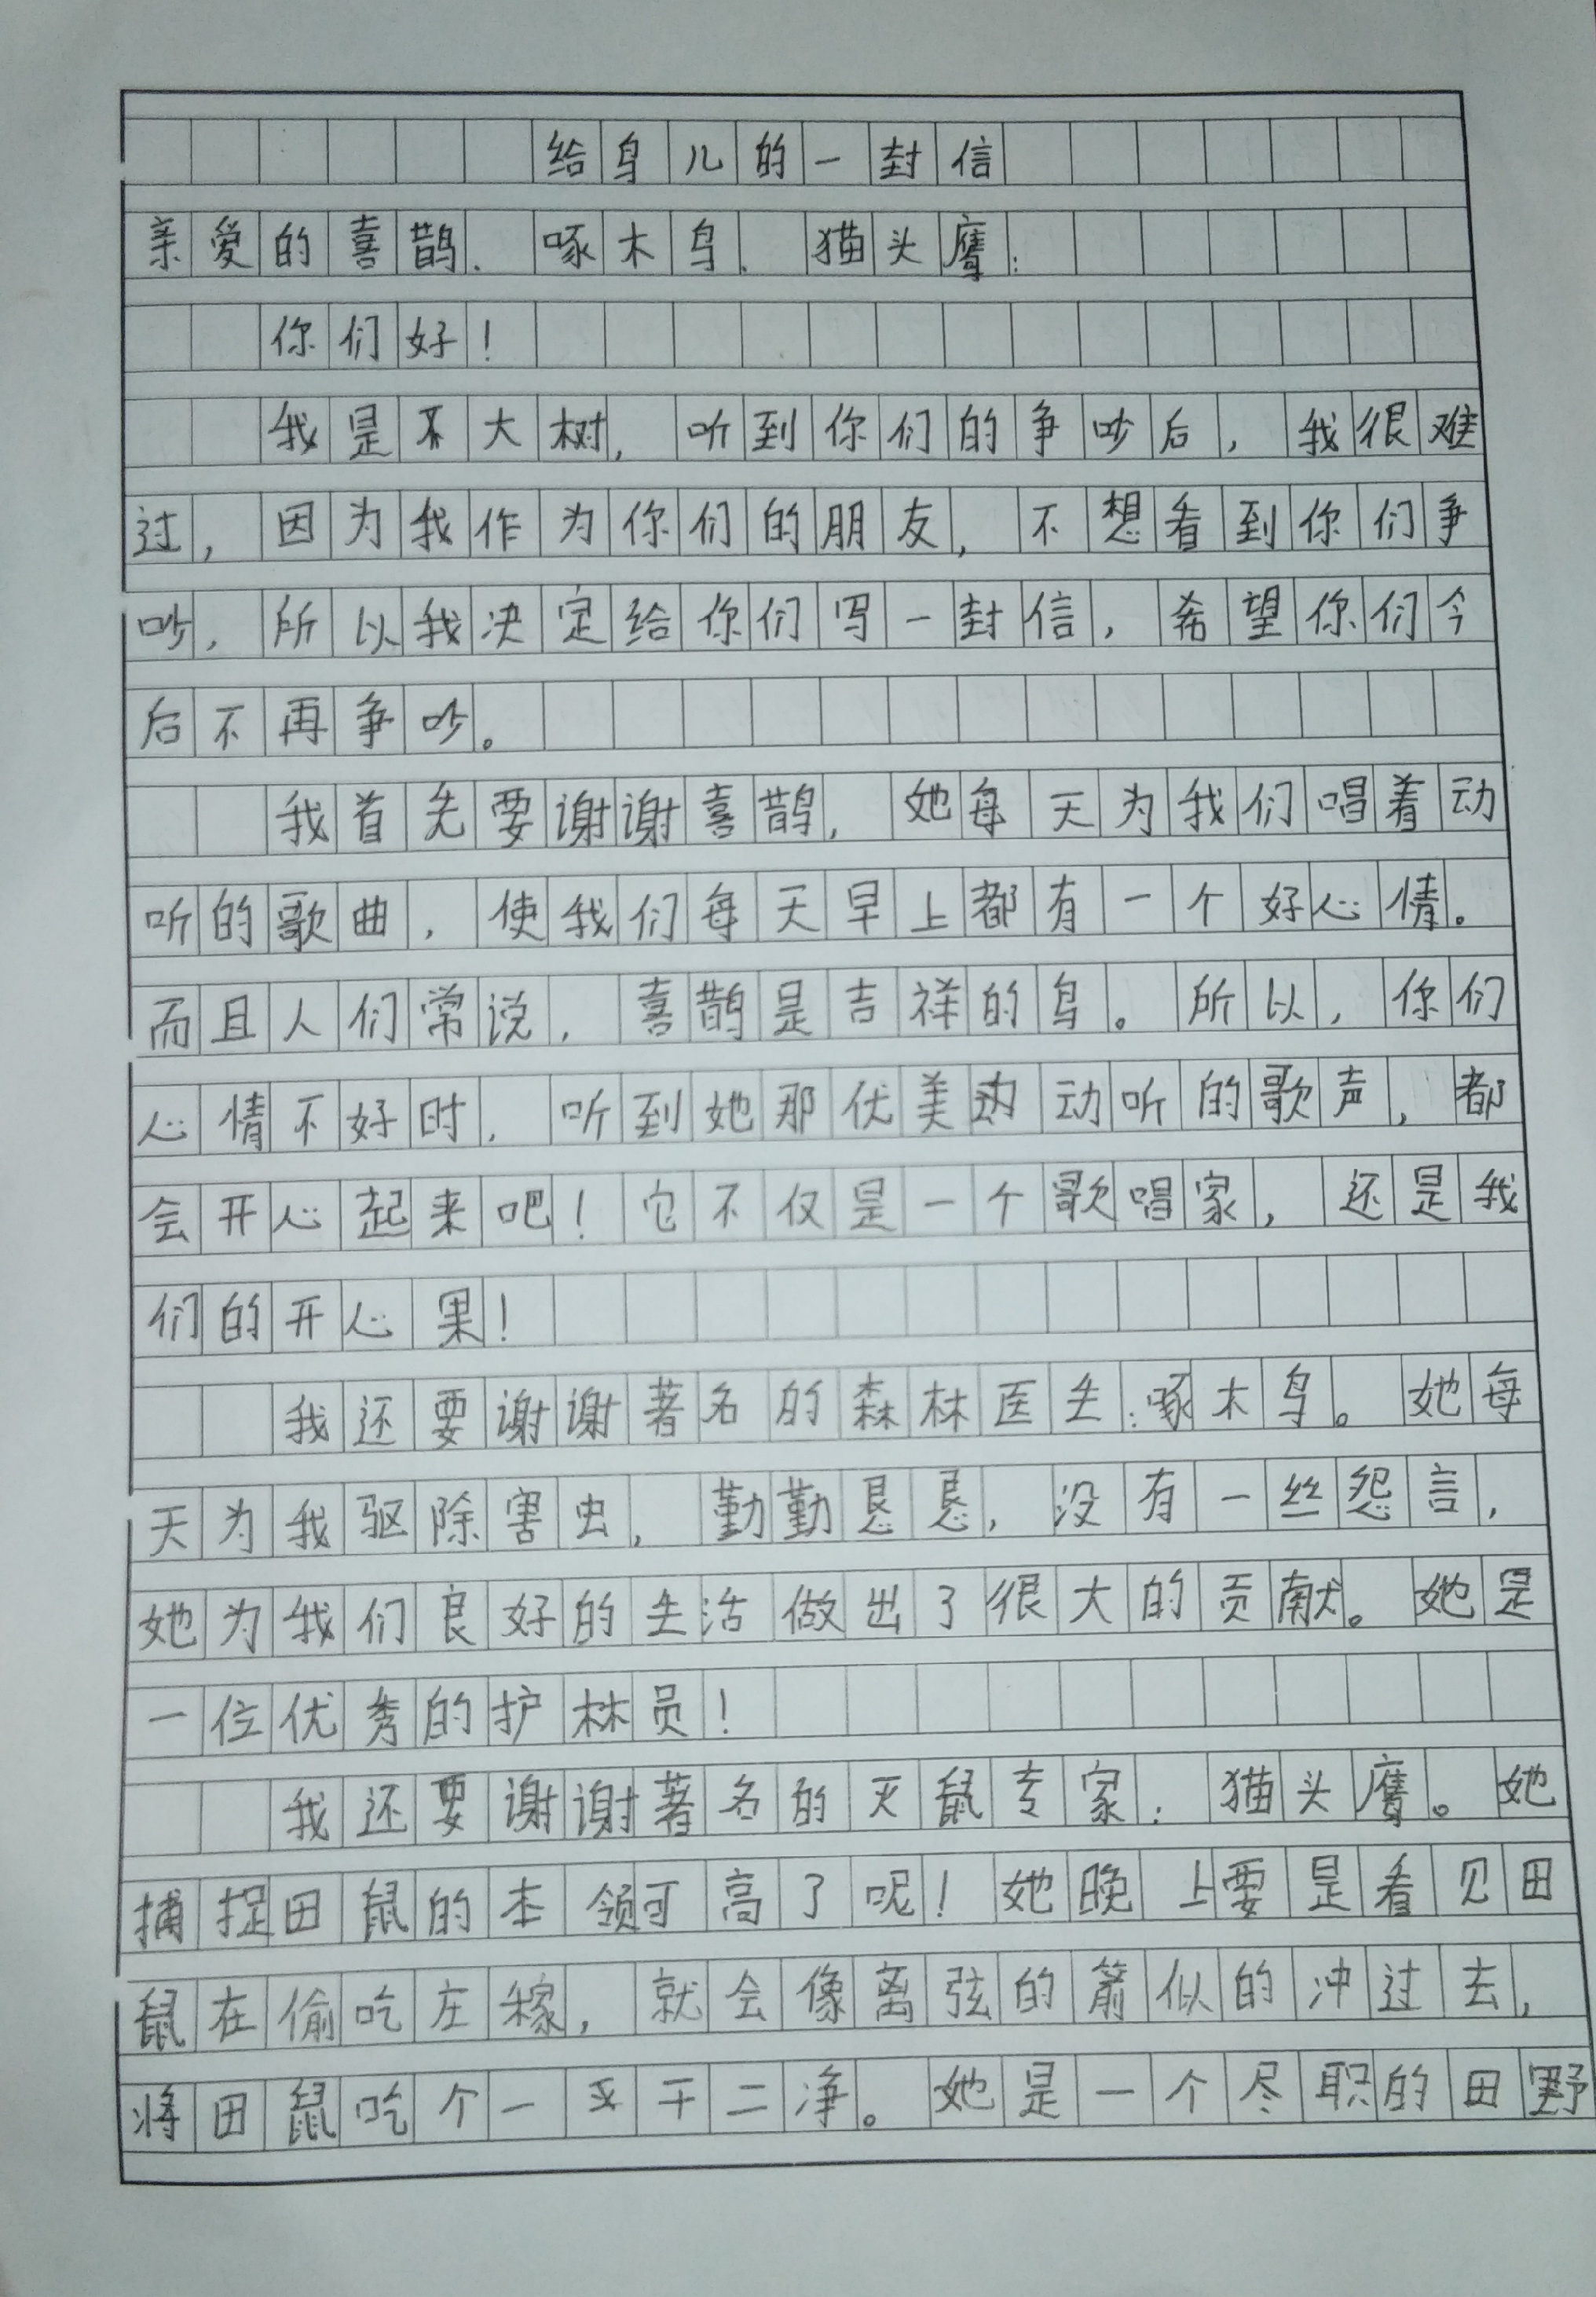 给鸟儿的一封信
亲爱的喜鹊、啄木鸟、猫头鹰：
你们好！
我是大树，听到你们的争吵后，我很难
过，因为我作为你们的朋友，不想看到你们争
吵，所以我决定给你们写一封信，希望你们今
后不再争吵。
我首先要谢谢喜鹊，她每天为我们唱着动
听的歌曲，使我们每天早上都有一个好心情。
而且人们常说，喜鹊是吉祥的鸟。所以，你们
心情不好时，听到她那优美动听的歌声，都
会开心起来吧！它不仅是一个歌唱家，还是我
们的开心果！
我还要谢谢著名的森林医生：啄木鸟。她每
天为我驱除害虫，勤勤恳恳，没有一丝怨言，
她为我们良好的生活做出了很大的贡献。她是
一位优秀的护林员！
我还要谢谢著名的灭鼠专家：猫头鹰。她
捕捉田鼠的本领可高了呢！她晚上要是看见田
鼠在偷吃庄稼，就会像离弦的箭似的冲过去，
将田鼠吃个一干二净。她是一个尽职的田野